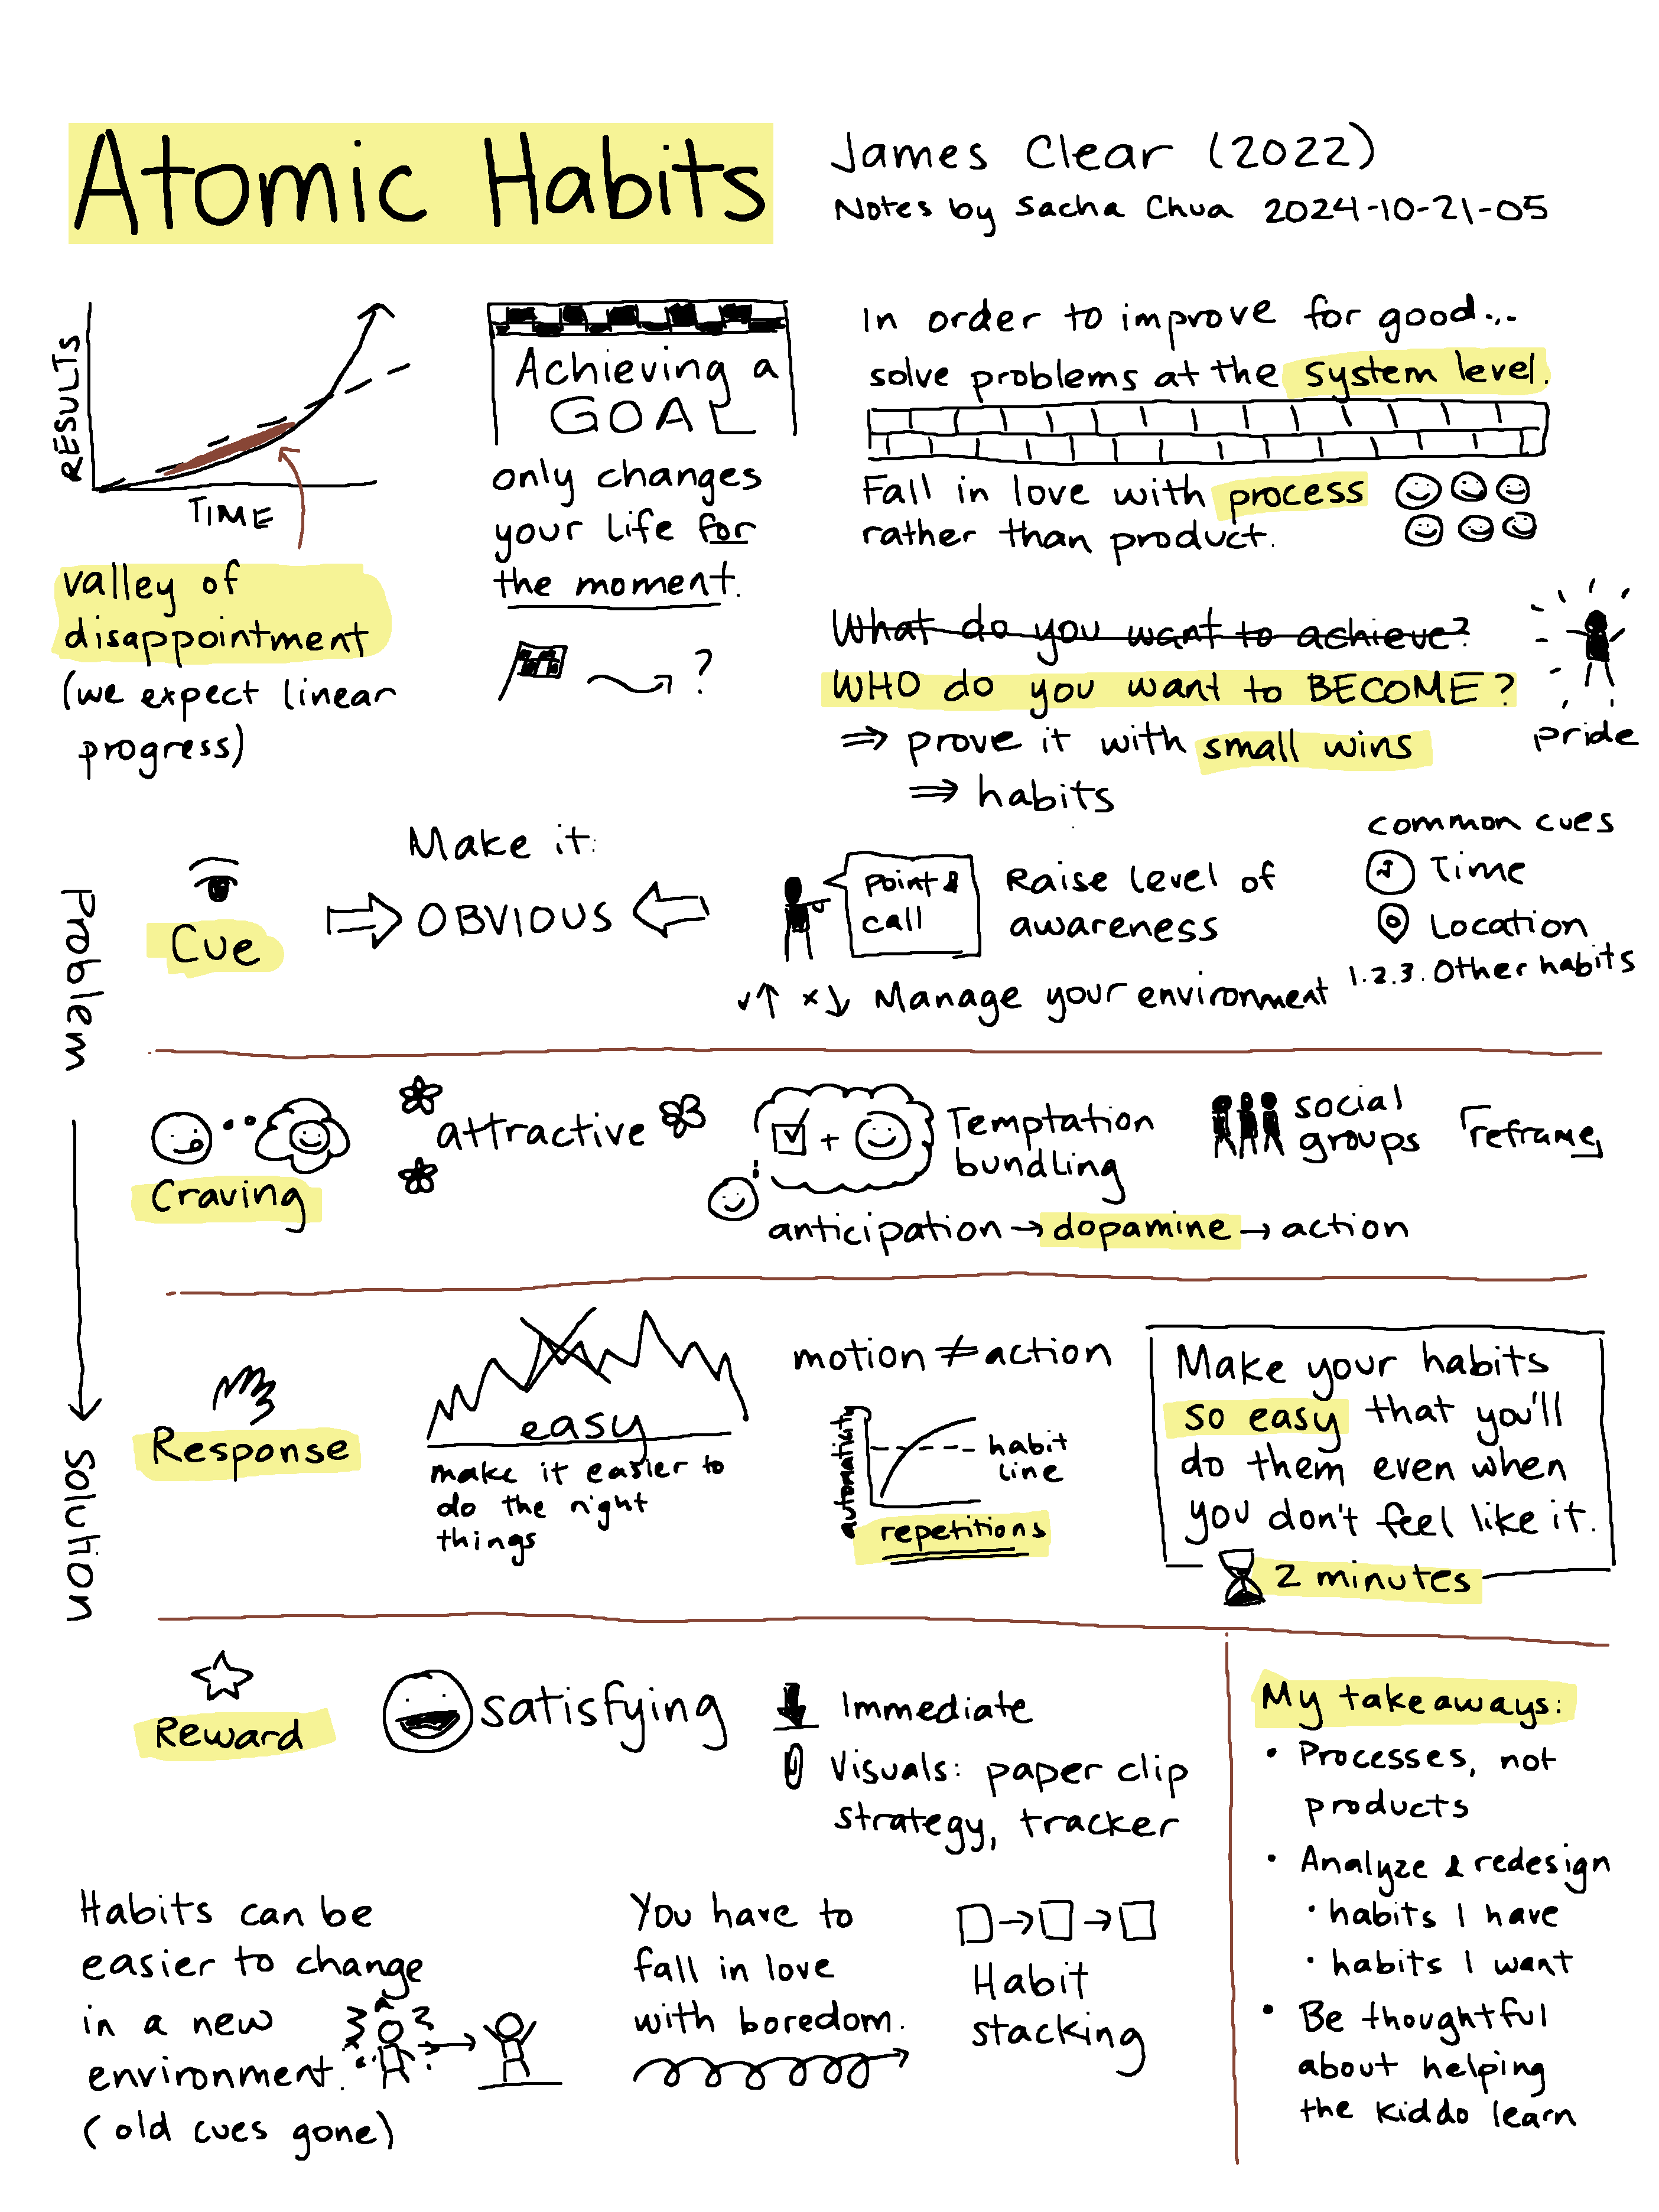 Atomic Habits
James Clear (2022)
Notes by Sacha Chua 2024-10-21-05
RESULTS
TIME
valley of
disappointment
(we expect linear
progress)
Achieving a
GOAL
only changes
your life for
the moment.
?
In order to improve for good...
solve problems at the system level.
Fall in love with process
rather than product.
What do you want to achieve?
WHO do you want to BECOME?
⇒ prove it with small wins
⇒ habits
pride
Problem → solution
Cue
Make it:
OBVIOUS
Point &
call
Raise level of
awareness
✓↑ ×↓ Manage your environment
common cues
Time
Location
1.2.3. Other habits
Craving
attractive
+
Temptation
bundling
anticipation → dopamine → action
social
groups
reframe
Response
easy
make it easier to
do the right
things
motion ≠ action
automaticity
habit
line
repetitions
Make your habits
so easy that you'll
do them even when
you don't feel like it.
2 minutes
Reward
satisfying
Immediate
Visuals: paper clip
strategy, tracker
Habits can be
easier to change
in a new
environment.
(old cues gone)
You have to
fall in love
with boredom.
Habit
stacking
My takeaways:
• Processes, not
products
• Analyze & redesign
• habits I have
• habits I want
• Be thoughtful
about helping
the kiddo learn